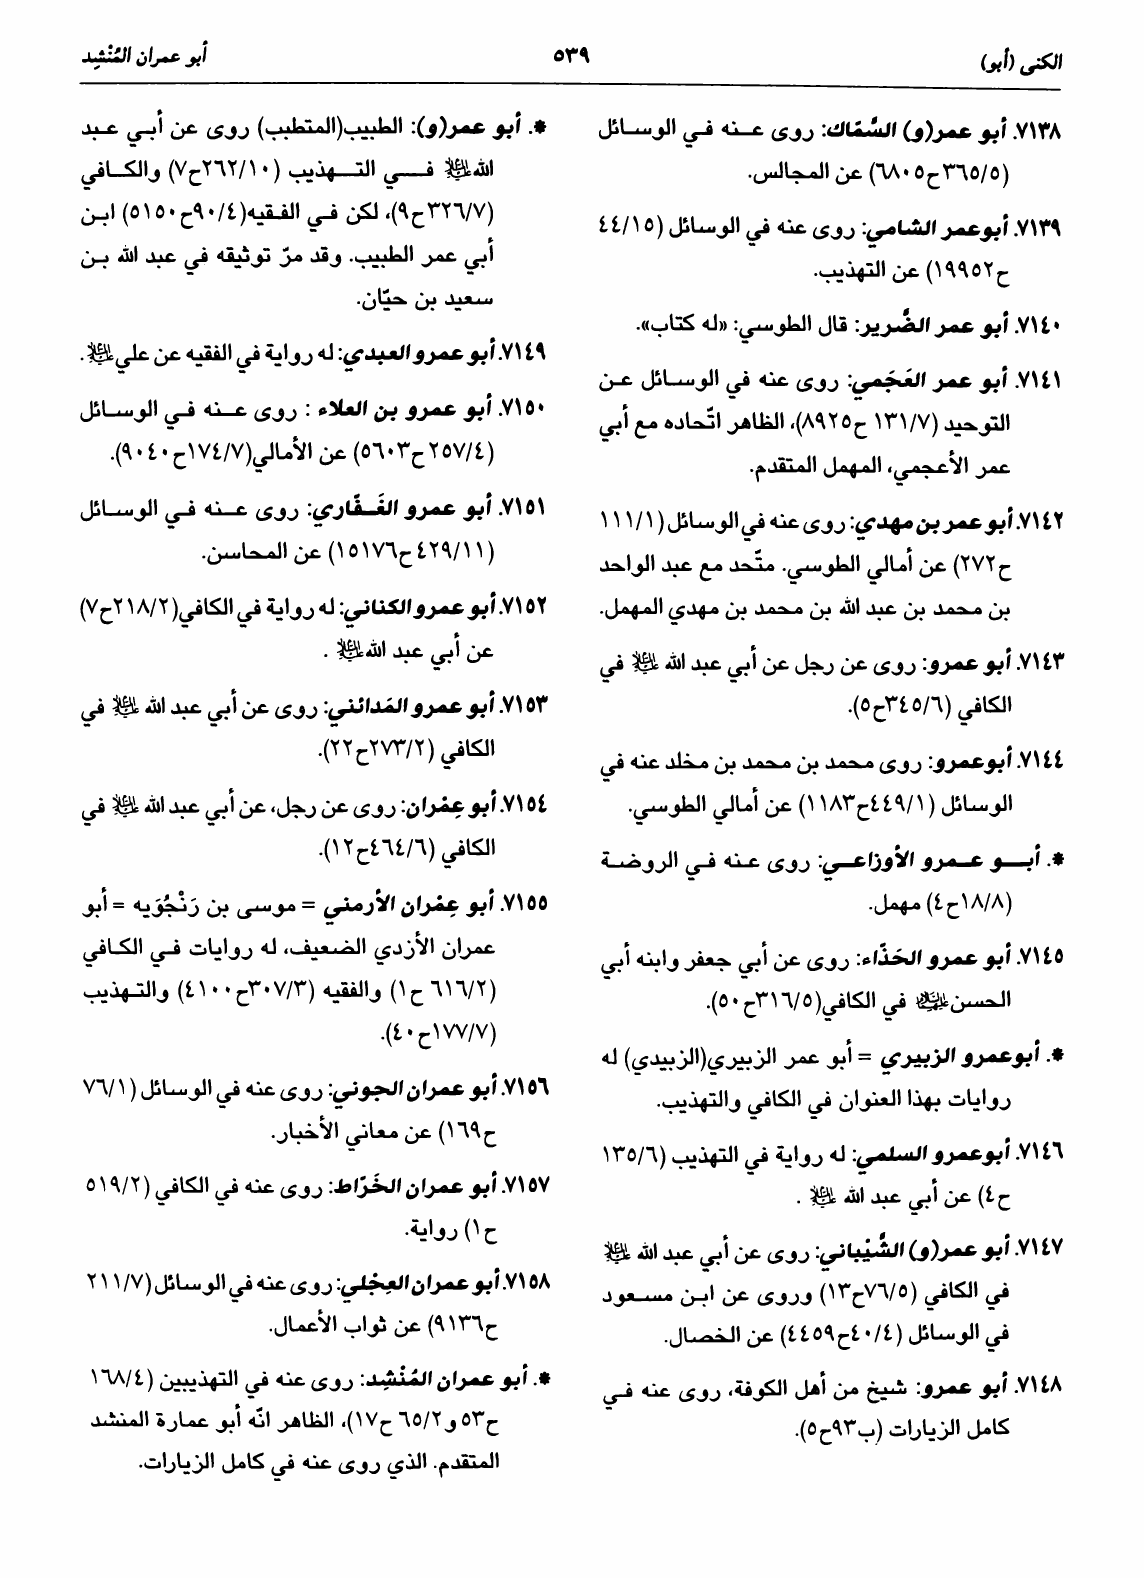 الكنى (أبو)
٥٣٩
أبو عمران المُنْشِد
٧١٣٨. أبو عمر(و) السَّمّاك: روى عنه في الوسائل
(٣٦٥/٥ح٦٨٠٥) عن المجالس.
٧١٣٩. أبوعمر الشامي: روى عنه في الوسائل (٤٤/١٥
ح١٩٩٥٢) عن التهذيب.
٧١٤٠. أبو عمر الضَّرير: قال الطوسي: «له كتاب».
٧١٤١. أبو عمر العَجَمي: روى عنه في الوسائل عن
التوحيد (١٣١/٧ ح٨٩٢٥)، الظاهر اتّحاده مع أبي
عمر الأعجمي، المهمل المتقدم.
٧١٤٢. أبو عمر بن مهدي: روى عنه في الوسائل (١١١/١
ح٢٧٢) عن أمالي الطوسي. متّحد مع عبد الواحد
بن محمد بن عبد الله بن محمد بن مهدي المهمل.
٧١٤٣. أبو عمرو: روى عن رجل عن أبي عبد الله عليه السلام في
الكافي (٣٤٥/٦ح٥).
٧١٤٤. أبوعمرو: روى محمد بن محمد بن مخلد عنه في
الوسائل (٤٤٩/١ح١١٨٣) عن أمالي الطوسي.
*. أبو عمرو الأوزاعي: روى عنه في الروضة
(١٨/٨ح٤) مهمل.
٧١٤٥. أبو عمرو الحَذّاء: روى عن أبي جعفر وابنه أبي
الحسن عليهما السلام في الكافي(٣١٦/٥ح٥٠).
*. أبوعمرو الزبيري = أبو عمر الزبيري(الزبيدي) له
روايات بهذا العنوان في الكافي والتهذيب.
٧١٤٦. أبوعمرو السلمي: له رواية في التهذيب (١٣٥/٦
ح٤) عن أبي عبد الله عليه السلام .
٧١٤٧. أبو عمر(و) الشَّيْباني: روى عن أبي عبد الله عليه السلام
في الكافي (٧٦/٥ح١٣) وروى عن ابن مسعود
في الوسائل (٤٠/٤ح٤٤٥٩) عن الخصال.
٧١٤٨. أبو عمرو: شيخ من أهل الكوفة، روى عنه في
كامل الزيارات (ب٩٣ح٥).
*. أبو عمر(و): الطبيب(المتطبب) روى عن أبي عبد
الله عليه السلام في التهذيب (٢٦٢/١٠ح٧) والكافي
(٣٢٦/٧ح٩)، لكن في الفقيه(٩٠/٤ح٥١٥٠) ابن
أبي عمر الطبيب. وقد مرّ توثيقه في عبد الله بن
سعيد بن حيّان.
٧١٤٩. أبو عمرو العبدي: له رواية في الفقيه عن علي عليه السلام.
٧١٥٠. أبو عمرو بن العلاء : روى عنه في الوسائل
(٢٥٧/٤ح٥٦٠٣) عن الأمالي(١٧٤/٧ح٩٠٤٠).
٧١٥١. أبو عمرو الغَفّاري: روى عنه في الوسائل
(٤٢٩/١١ ح١٥١٧٦) عن المحاسن.
٧١٥٢. أبو عمرو الكناني: له رواية في الكافي(٢١٨/٢ح٧)
عن أبي عبد الله عليه السلام .
٧١٥٣. أبو عمرو المَدائني: روى عن أبي عبد الله عليه السلام في
الكافي (٢٧٣/٢ح٢٢).
٧١٥٤. أبو عِمْران: روى عن رجل، عن أبي عبد الله عليه السلام في
الكافي (٤٦٤/٦ح١٢).
٧١٥٥. أبو عِمْران الأرمني = موسى بن رَنْجُوَيه = أبو
عمران الأزدي الضعيف، له روايات في الكافي
(٦١٦/٢ ح١) والفقيه (٣٠٧/٣ح٤١٠٠) والتهذيب
(١٧٧/٧ح٤٠).
٧١٥٦. أبو عمران الجوني: روى عنه في الوسائل (٧٦/١
ح١٦٩) عن معاني الأخبار.
٧١٥٧. أبو عمران الخَرّاط: روى عنه في الكافي (٥١٩/٢
ح١) رواية.
٧١٥٨. أبو عمران العِجْلي: روى عنه في الوسائل (٢١١/٧
ح٩١٣٦) عن ثواب الأعمال.
*. أبو عمران المُنْشِد: روى عنه في التهذيبين (١٦٨/٤
ح٥٣ و٦٥/٢ ح١٧)، الظاهر انّه أبو عمارة المنشد
المتقدم. الذي روى عنه في كامل الزيارات.